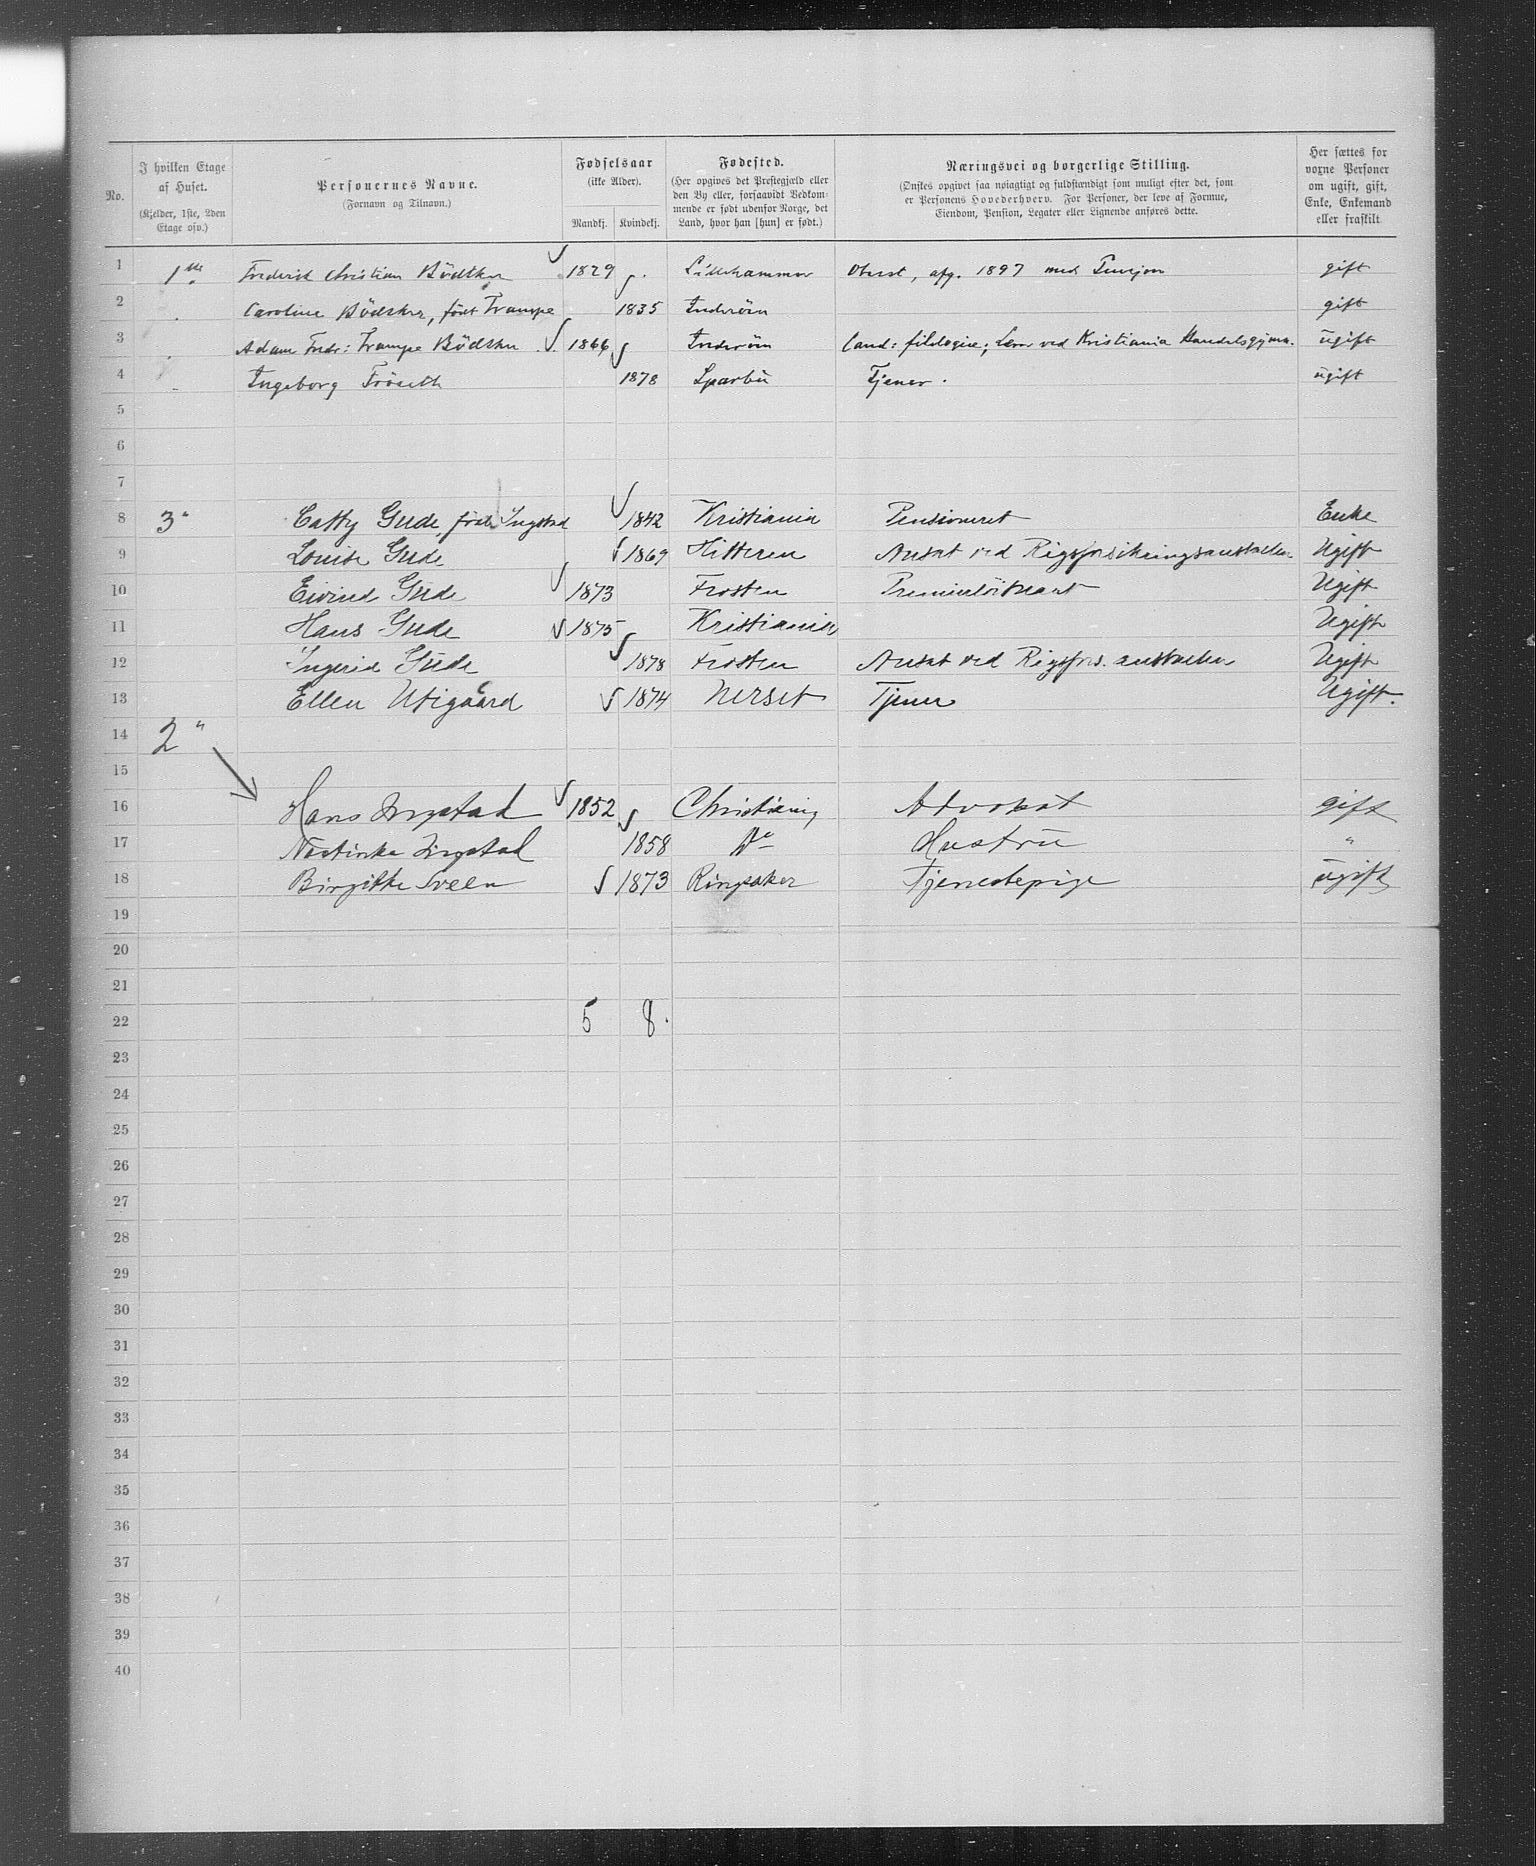 No. | I hvilken Etage af Huset. (Kjelder, 1ste, 2den Etage osv.) | Personernes Navne. (Fornavn og Tilnavn.) | Fødselsaar (ikke Alder). Mandkj. | Kvindekj. | Fødested. (Her opgives det Prestegjæld eller den By eller, forsaavidt Vedkommende er født udenfor Norge, det Land, hvor han [hun] er født.) | Næringsvei og borgerlige Stilling. (Ønskes opgivet saa nøiagtigt og fuldstændigt som muligt efter det, som er Personens Hovederhverv. For Personer, der leve af Formue, Eiendom, Pension, Legater eller Lignende anføres dette. | Her sættes for voxne Personer om ugift, gift, Enke, Enkemand eller fraskilt
1 | 1ste | Frederik Christian Bödtker | 1829 | | Lillehammer | Oberst, afg. 1897 med Pension | gift
2 | " | Caroline Bödtker, født Trampe | | 1835 | Inderöen | | gift
3 | " | Adam Fredr: Trampe Bödtker | 1866 | | Inderöen | Cand: filologiæ; Lærer ved Kristiania Handelsgymn. | ugift
4 | " | Ingeborg Fröseth | | 1878 | Sparbu | Tjener. | ugift
5
6
7
8 | 3" | Catty Gude, født Ingstad | | 1842 | Kristiania | Pensioneret | Enke
9 | Louise Gude | | 1869 | Hitteren | Ansat ved Rigsforsikringsanstalten | Ugift
10 | Eivind Gude | 1873 | | Frosten | Premierlöitnant | Ugift
11 | Hans Gude | 1875 | | Kristiania | | Ugift
12 | Ingerid Gude | | 1878 | Frosten | Ansat ved Rigsfors. anstalten | Ugift
13 | Ellen Utigaard | | 1874 | Nerset | Tjener | Ugift.
14 | 2"
15
16 | Hans Ingstad | 1852 | | Christiania | Advokat | gift
17 | Nastinka Ingstad | | 1858 | Do | Hustru | "
18 | Birgitte Sveen | | 1873 | Ringsaker | Tjenestepige | ugift
19
20
21
22 | 5 | 8.
23
24
25
26
27
28
29
30
31
32
33
34
35
36
37
38
39
40